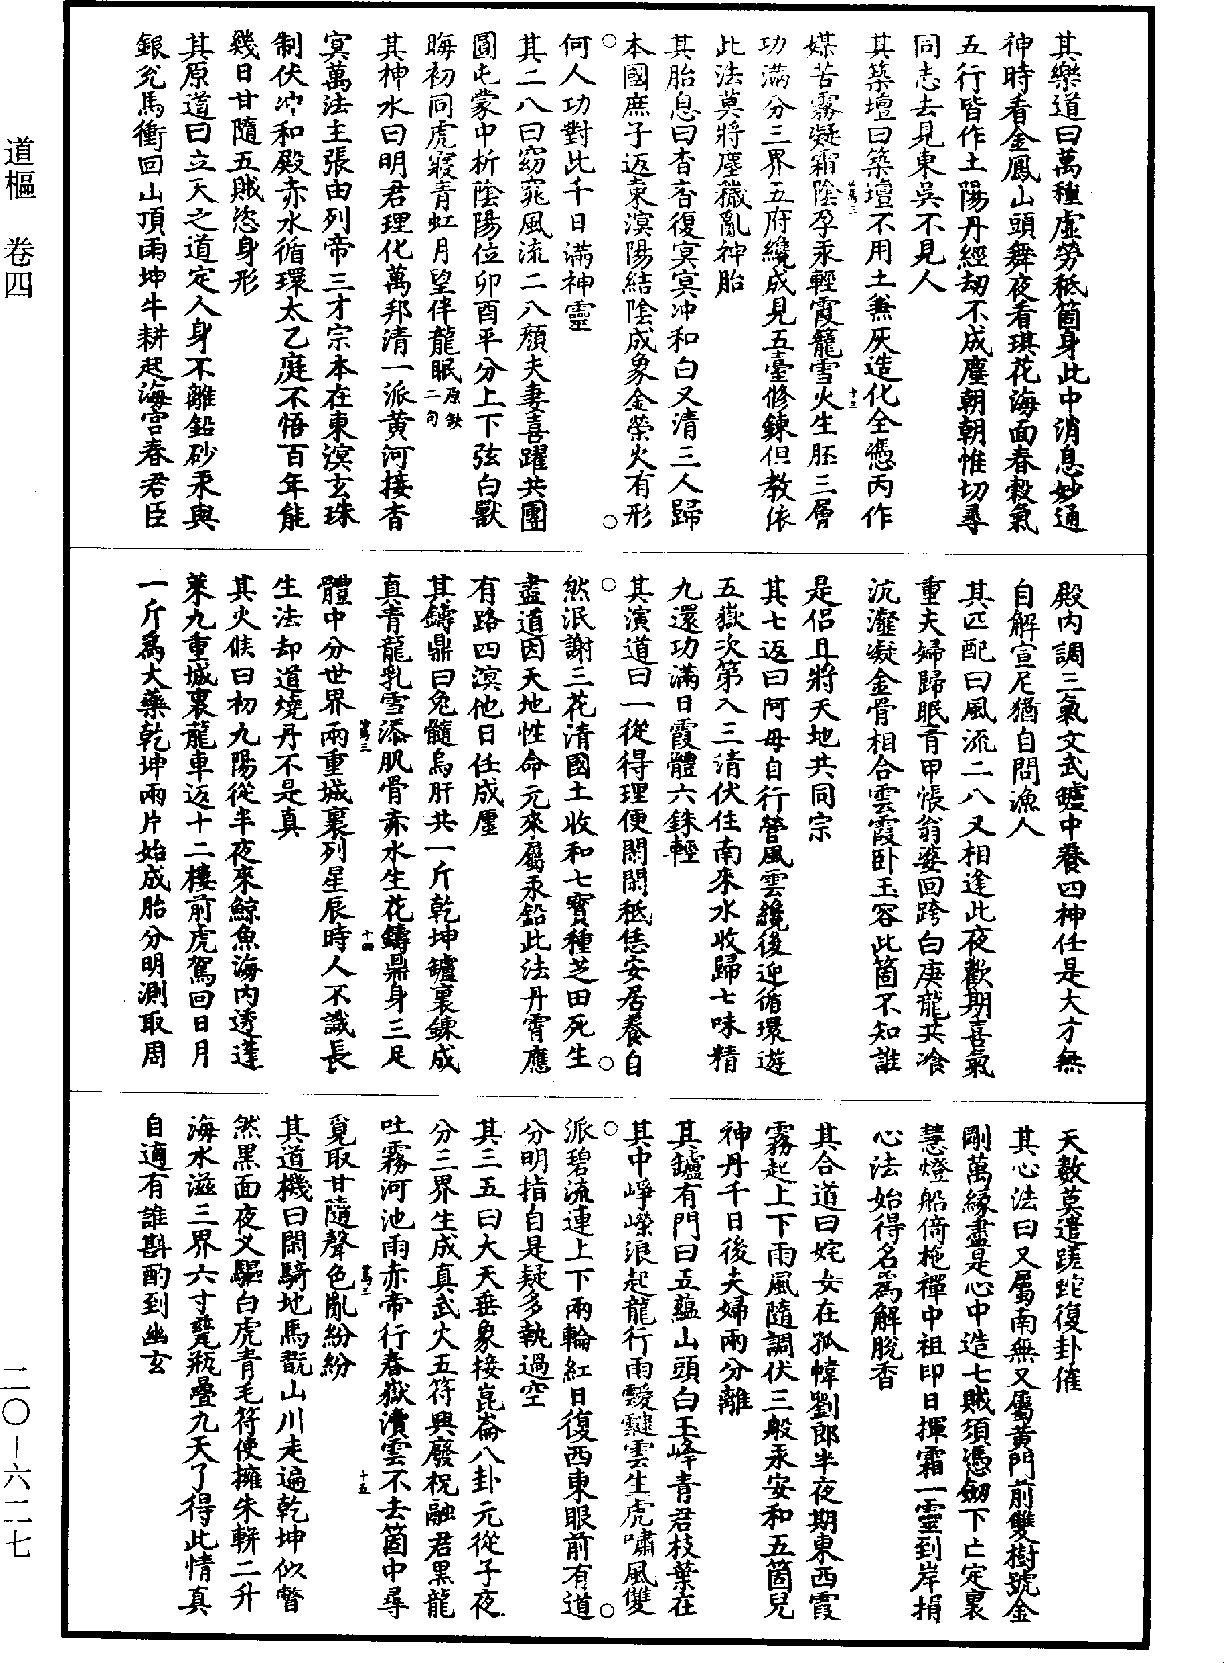 其樂道曰萬種虛勞秪箇身此中消息妙通
神時看金鳳山頭舞夜看琪花海面春穀氣
五行皆作土陽丹經劫不成塵朝朝惟切尋
同志去見東吳不見人
其築壇曰築壇不用土無灰造化全憑丙作
媒苦霧凝霜陰孕汞輕霞籠雪火生胚三層
功滿分三界五府纔成見五臺修鍊但教依
此法莫將塵穢亂神胎
其胎息曰杳杳復冥冥冲和白又清三人歸
本國庶子返東溟陽結陰成象金榮火有形
何人功對此千日滿神靈
其二八曰窈窕風流二八顏夫妻喜躍共團
圓屯蒙中析陰陽位卯酉平分上下弦白獸
晦初同虎寢青虹月望伴龍眠原缺二句
其神水曰明君理化萬邦清一派黄河接杳
冥萬法主張由列帝三才宗本在東溟玄珠
制伏冲和殿赤水循環太乙庭不悟百年能
幾日甘隨五賊恣身形
其原道曰立天之道定人身不離鉛砂汞與
銀兊馬衝回山頂雨坤牛耕起海宫春君臣
殿内調三氣文武鑪中養四神任是大才無
自解宣尼猶自問漁人
其匹配曰風流二八又相逢此夜歡期喜氣
重夫婦歸眠青甲悵翁婆回跨白庚龍共飡
沆瀣凝金骨相合雲霞卧玉容此箇不知誰
是侣且將天地共同宗
其七返曰阿母自行營風雲纔後迎循環遊
五嶽次第入三清伏住南來水收歸七味精
九還功滿日霞體六銖輕
其演道曰一從得理便閑閑秪恁安居養自
然泯謝三花清國土收和七寶種芝田死生
盡道因天地性命元來屬汞鉛此法丹霄應
有路四溟他日任成塵
其鑄鼎曰兔髓烏肝共一斤乾坤鑪裏鍊成
真青龍乳雪添肌骨赤水生花鑄鼎身三足
體中分世界兩重城裏列星辰時人不識長
生法却道燒丹不是真
其火候曰初九陽從半夜來鯨魚海内透蓬
萊九重城裏龍車返十二樓前虎駕回日月
一斤爲大藥乾坤兩片始成胎分明測取周
天數莫遣蹉跎復卦催
其心法曰又屬南無又屬黄門前雙樹號金
剛萬緣盡是心中造七賊須憑劒下亡定裏
慧燈船倚柂禪中祖印日揮霜一靈到岸捐
心法始得名爲解脫香
其合道曰姹女在孤幃劉郎半夜期東西霞
霧起上下雨風隨調伏三般汞安和五箇兒
神丹千日後夫婦兩分離
其鑪有門曰五蘊山頭白玉峰青君枝葉在
其中崢嶸浪起龍行雨靉靆雲生虎嘯風雙
派碧流連上下兩輪紅日復西東眼前有道
分明指自是疑多執過空
其三五曰大天垂象接崑崙八卦元從子夜
分三界生成真武火五符興廢祝融君黑龍
吐霧河池雨赤帝行春嶽瀆雲不去箇中尋
覓取甘隨聲色亂紛紛
其道機曰閑騎地馬翫山川走遍乾坤似瞥
然黑面夜叉驅白虎青毛符使擁朱軿二升
海水滋三界六寸甕瓶疊九天了得此情真
自適有誰斟酌到幽玄
道樞　卷四
二〇－六二七